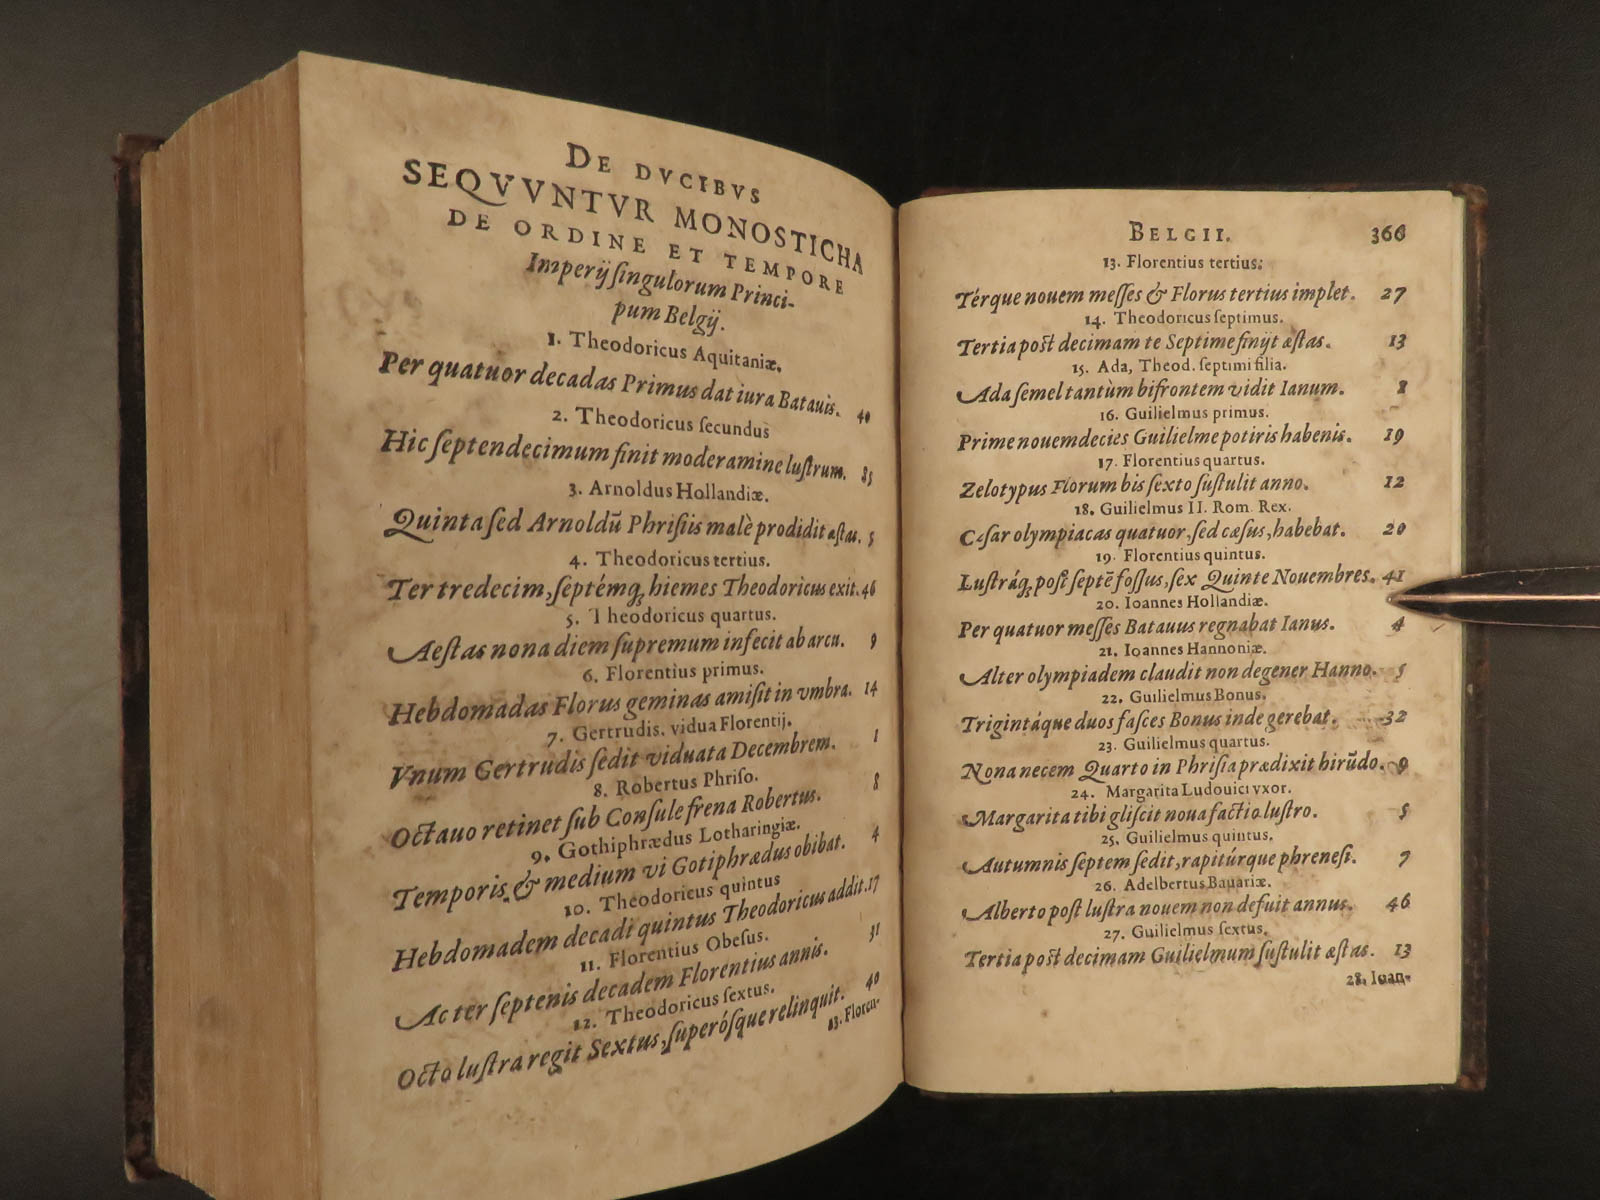 DE DVCIBVS
SEQVVNTVR MONOSTICHA
DE ORDINE ET TEMPORE
Imperij singulorum Princi-
pum Belgij.
1. Theodoricus Aquitaniæ.
Per quatuor decadas Primus dat iura Batauis. 40
2. Theodoricus secundus
Hic septendecimum finit moderamine lustrum. 85
3. Arnoldus Hollandiæ.
Quinta sed Arnoldū Phrisiis malè prodidit æstas. 5
4. Theodoricus tertius.
Ter tredecim, septémq; hiemes Theodoricus exit. 46
5. Theodoricus quartus.
Aestas nona diem supremum infecit ab arcu. 9
6. Florentius primus.
Hebdomadas Florus geminas amisit in vmbra. 14
7. Gertrudis. vidua Florentij.
Vnum Gertrudis sedit viduata Decembrem. 1
8. Robertus Phriso.
Octauo retinet sub Consule frena Robertus. 8
9. Gothiphrædus Lotharingiæ.
Temporis & medium vi Gotiphrædus obibat. 4
10. Theodoricus quintus
Hebdomadem decadi quintus Theodoricus addit. 17
11. Florentius Obesus.
Ac ter septenis decadem Florentius annis. 31
12. Theodoricus sextus.
Octo lustra regit Sextus, superósque relinquit. 40
13. Floren-
BELGII. 366
13. Florentius tertius.
Térque nouem messes & Florus tertius implet. 27
14. Theodoricus septimus.
Tertia post decimam te Septime finijt æstas. 13
15. Ada, Theod. septimi filia.
Ada semel tantùm bifrontem vidit Ianum. 1
16. Guilielmus primus.
Prime nouemdecies Guilielme potiris habenis. 19
17. Florentius quartus.
Zelotypus Florum bis sexto sustulit anno. 12
18. Guilielmus II. Rom. Rex.
Cæsar olympiacas quatuor, sed cæsus, habebat. 20
19. Florentius quintus.
Lustráq; post septē fossus, sex Quinte Nouembres. 41
20. Ioannes Hollandiæ.
Per quatuor messes Batauus regnabat Ianus. 4
21. Ioannes Hannoniæ.
Alter olympiadem claudit non degener Hanno. 5
22. Guilielmus Bonus.
Trigintáque duos fasces Bonus inde gerebat. 32
23. Guilielmus quartus.
Nona necem Quarto in Phrisia prædixit hirūdo. 9
24. Margarita Ludouici vxor.
Margarita tibi gliscit noua factio lustro. 5
25. Guilielmus quintus.
Autumnis septem sedit, rapitúrque phrenesi. 7
26. Adelbertus Bauariæ.
Alberto post lustra nouem non defuit annus. 46
27. Guilielmus sextus.
Tertia post decimam Guilielmum sustulit æstas. 13
28. Ioan-